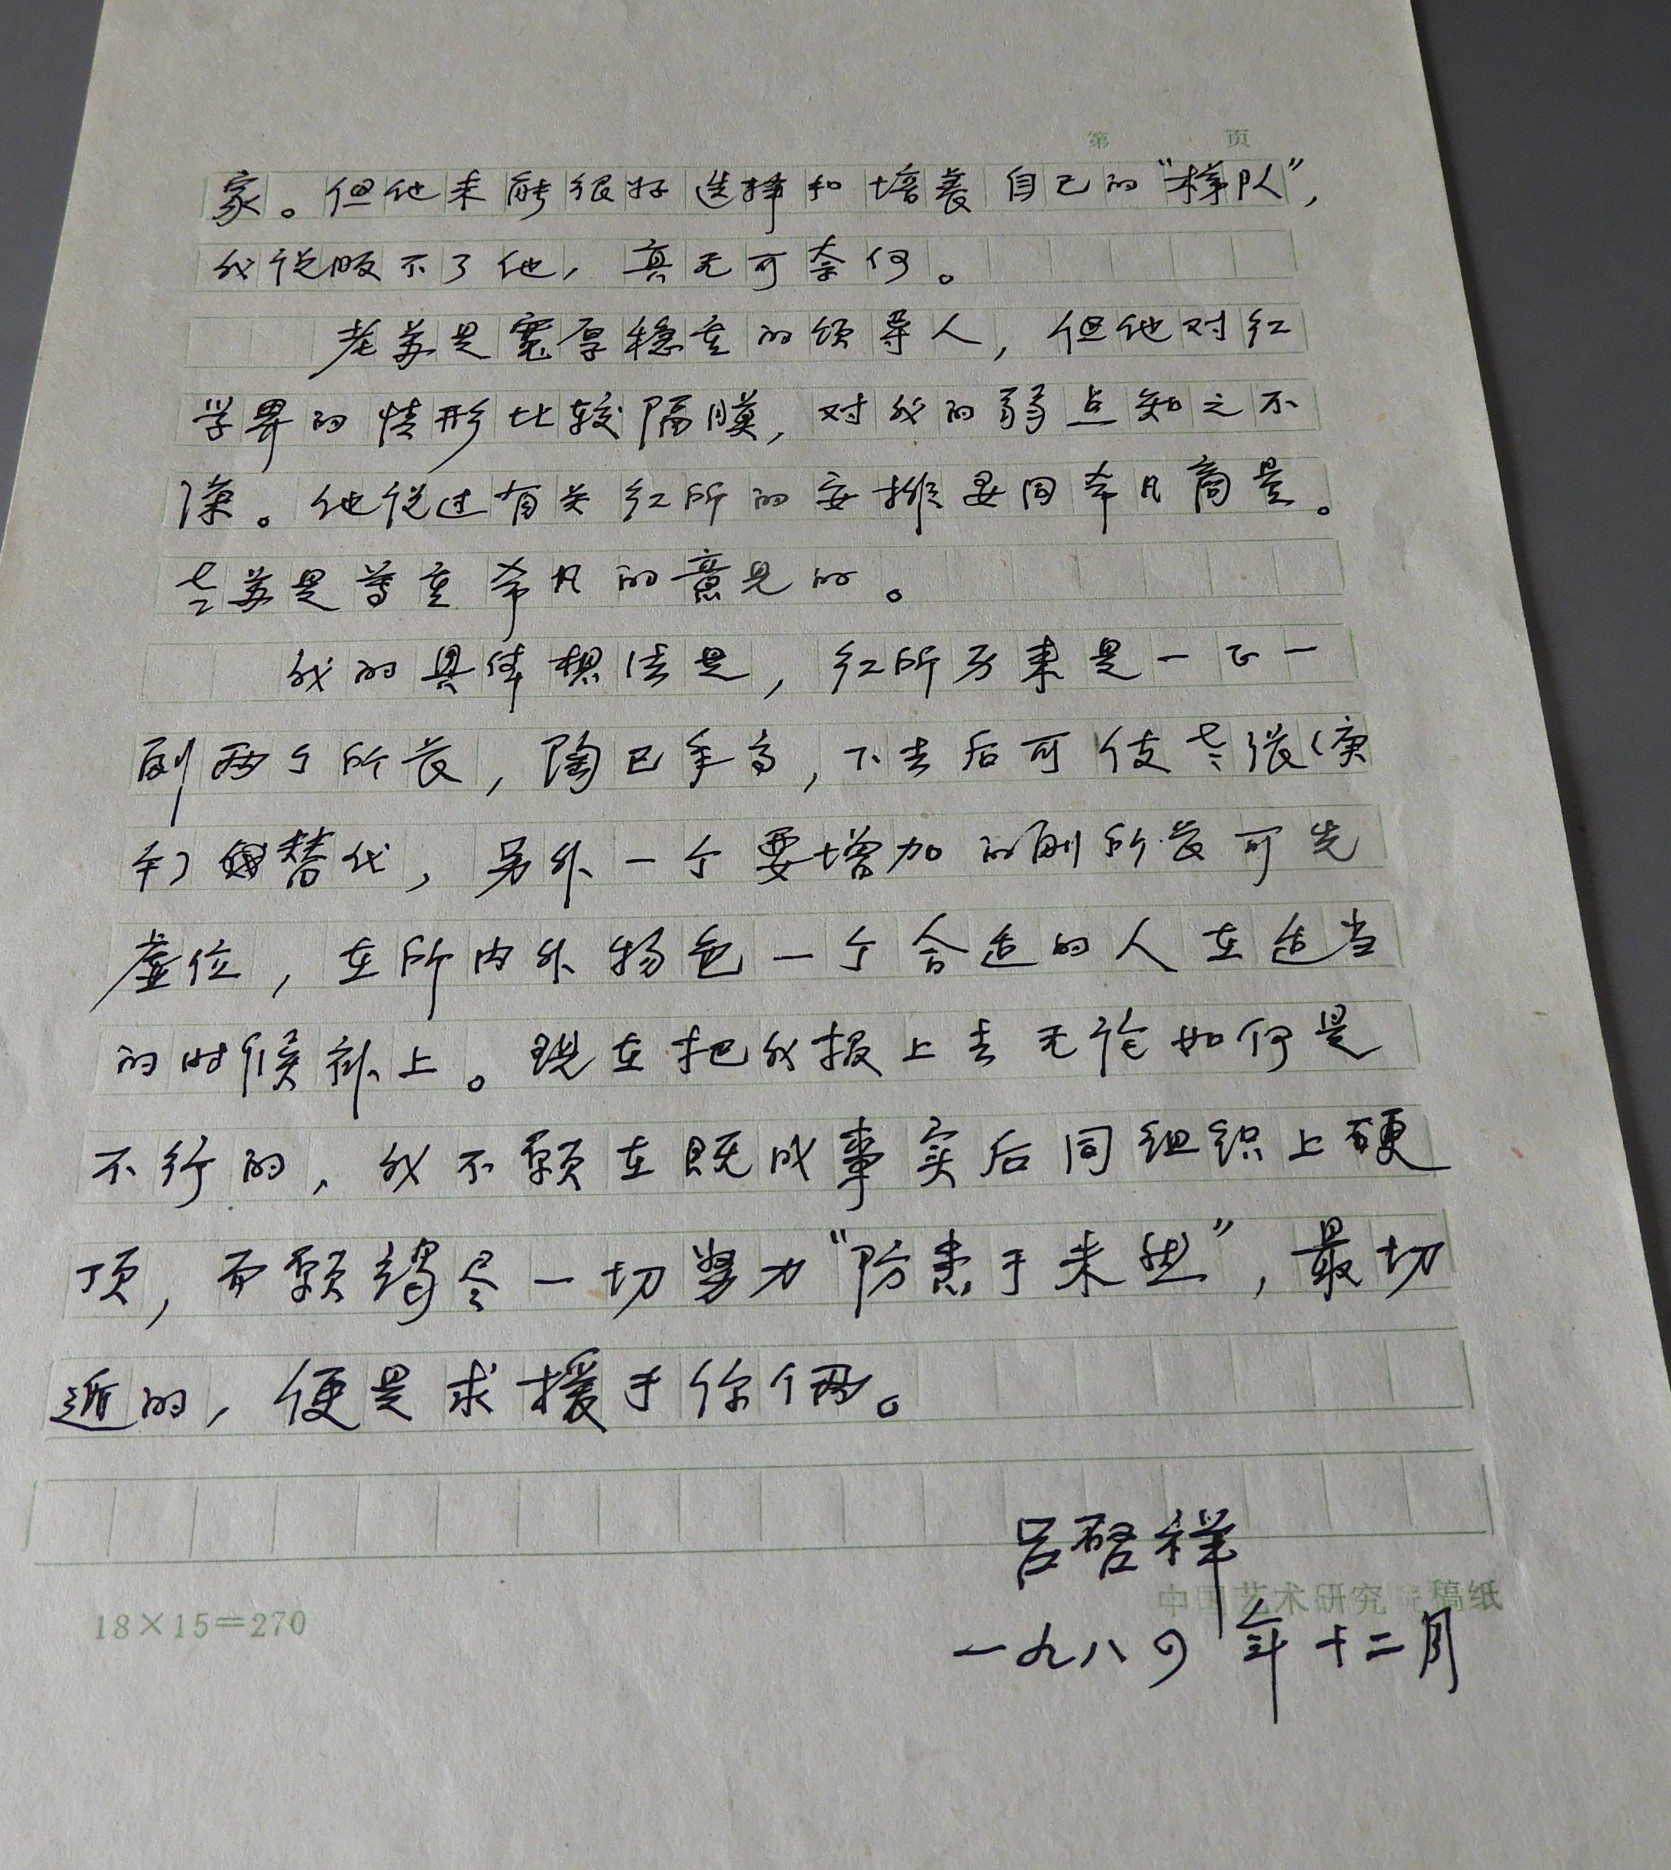 第 页
家。但他未能很好选择和培养自己的“梯队”，
我说服不了他，真无可奈何。
老苏是宽厚稳重的领导人，但他对红
学界的情形比较隔膜，对我的弱点知之不
深。他说过有关红所的安排要同希凡商量。
老苏是尊重希凡的意见的。
我的具体想法是，红所历来是一正一
副两个所长，陶已年高，下去后可使老张（庆
善）替代，另外一个要增加的副所长可先
虚位，在所内外物色一个合适的人在适当
的时候补上。现在把我报上去无论如何是
不行的，我不愿在既成事实后同组织上硬
顶，而愿竭尽一切努力“防患于未然”，最切
近的，便是求援于你们两。
吕启祥
18×15=270
中国艺术研究院稿纸
一九八四年十二月